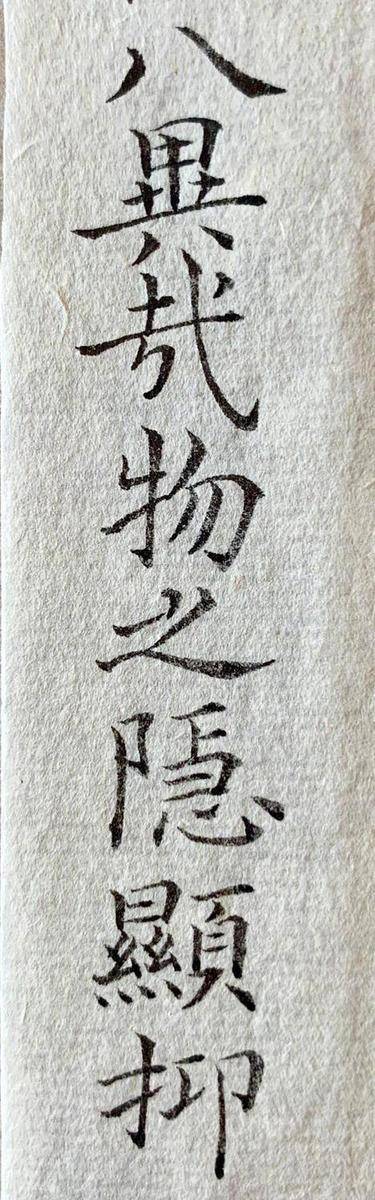 八異哉物之隱顯抑